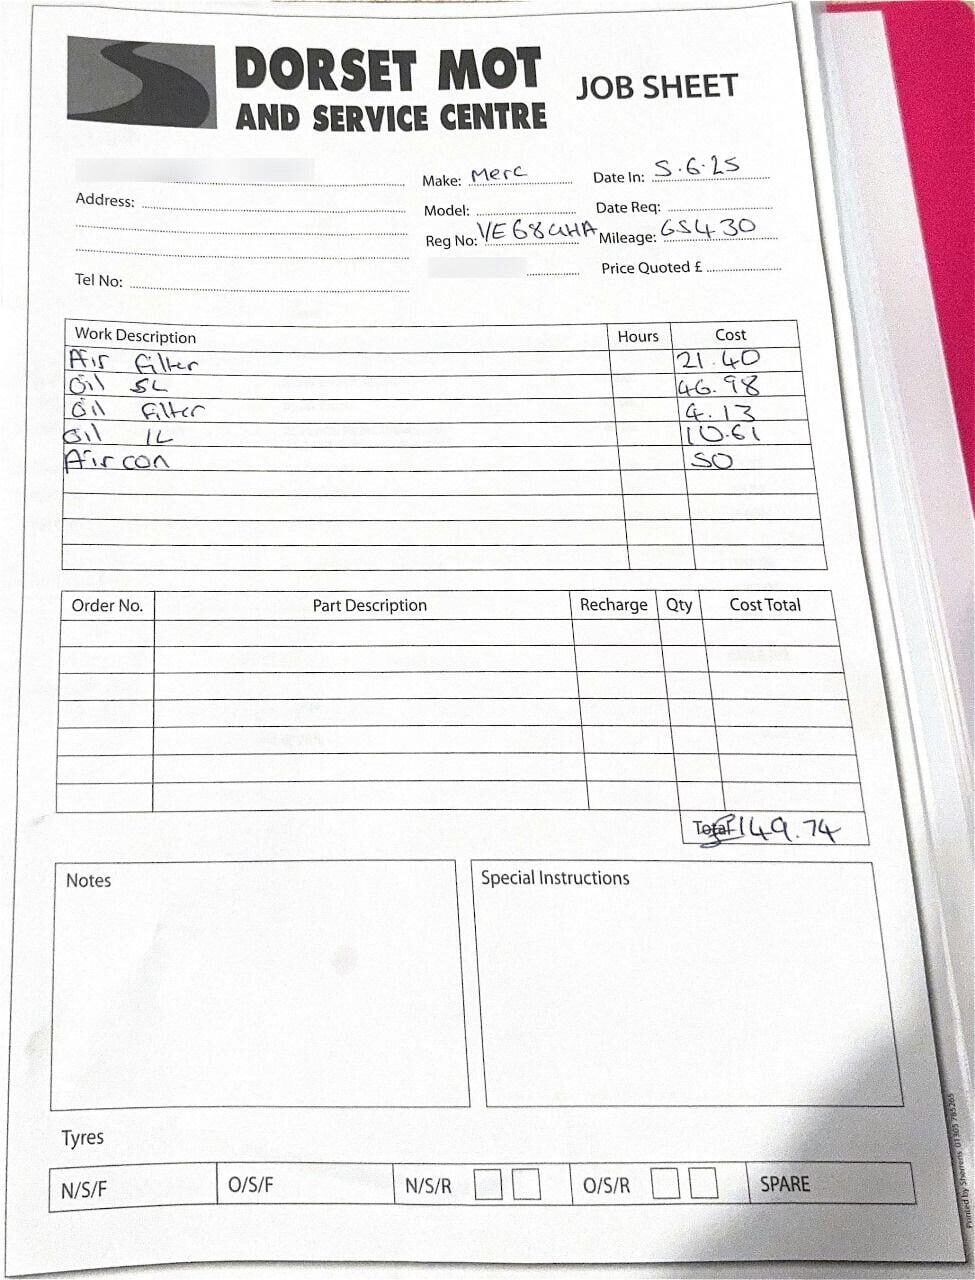 DORSET MOT
AND SERVICE CENTRE
JOB SHEET
Make: Merc
Date In: 5.6.25
Address:
Model:
Date Req:
Reg No: VE68UHA
Mileage: 65430
Price Quoted £
Tel No:
Work Description Hours Cost
Air Filter 21.40
Oil 5L 46.98
Oil Filter 4.13
Oil 1L 10.61
Air con 50
Order No. Part Description Recharge Qty Cost Total
Total £149.74
Notes
Special Instructions
Tyres
N/S/F O/S/F N/S/R O/S/R SPARE
Printed by Sherrens 01305 785265